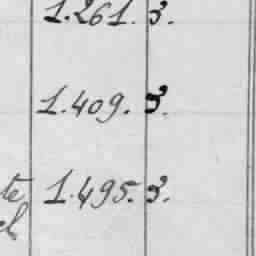 1.261. 3.
1.409. 3.
te 1.495. 3.
el